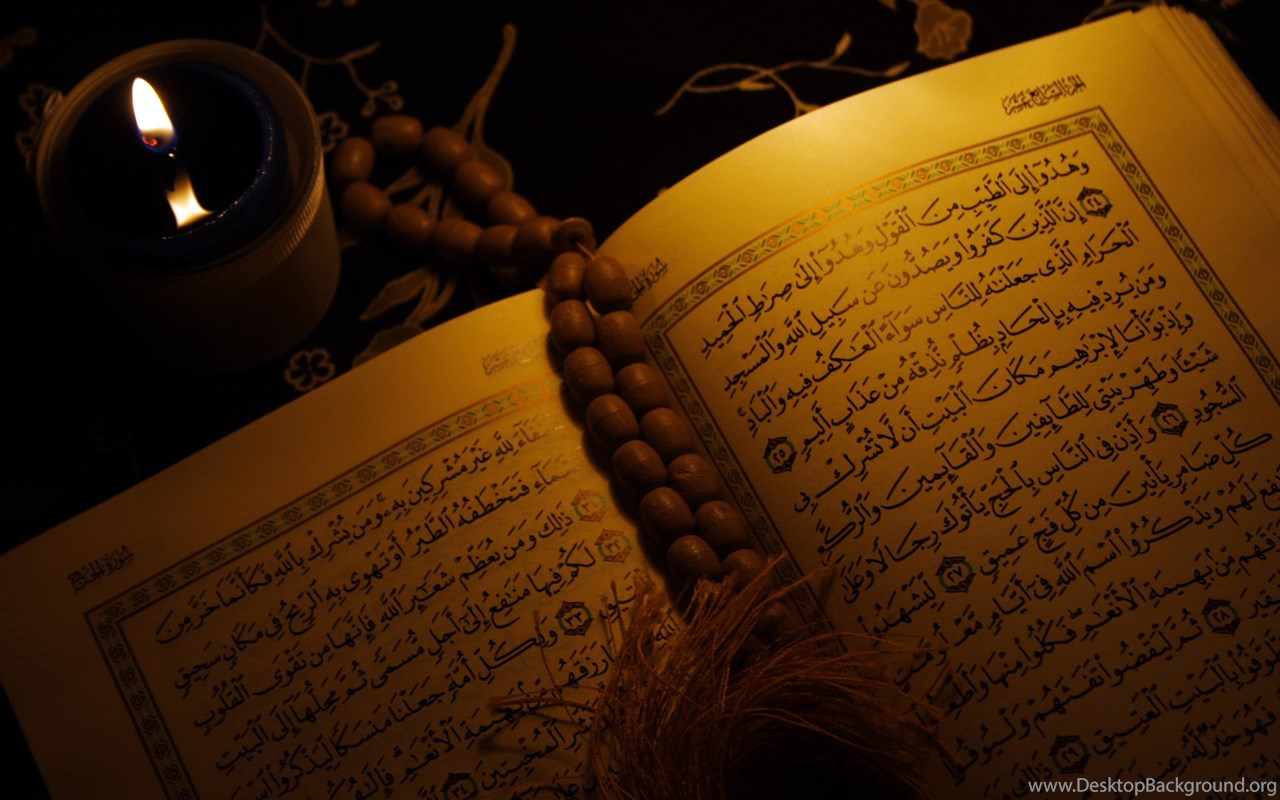 الجزء السابع عشر
سورة الحج
وَهُدُوٓا۟ إِلَى ٱلطَّيِّبِ مِنَ ٱلْقَوْلِ وَهُدُوٓا۟ إِلَىٰ صِرَٰطِ ٱلْحَمِيدِ
٢٤ إِنَّ ٱلَّذِينَ كَفَرُوا۟ وَيَصُدُّونَ عَن سَبِيلِ ٱللَّهِ وَٱلْمَسْجِدِ
ٱلْحَرَامِ ٱلَّذِى جَعَلْنَٰهُ لِلنَّاسِ سَوَآءً ٱلْعَٰكِفُ فِيهِ وَٱلْبَادِ
وَمَن يُرِدْ فِيهِ بِإِلْحَادٍۭ بِظُلْمٍ نُّذِقْهُ مِنْ عَذَابٍ أَلِيمٍ ٢٥
وَإِذْ بَوَّأْنَا لِإِبْرَٰهِيمَ مَكَانَ ٱلْبَيْتِ أَن لَّا تُشْرِكْ بِى
شَيْـًٔا وَطَهِّرْ بَيْتِىَ لِلطَّآئِفِينَ وَٱلْقَآئِمِينَ وَٱلرُّكَّعِ
ٱلسُّجُودِ ٢٦ وَأَذِّن فِى ٱلنَّاسِ بِٱلْحَجِّ يَأْتُوكَ رِجَالًا وَعَلَىٰ
كُلِّ ضَامِرٍ يَأْتِينَ مِن كُلِّ فَجٍّ عَمِيقٍ ٢٧ لِّيَشْهَدُوا۟
لَهُمْ وَيَذْكُرُوا۟ ٱسْمَ ٱللَّهِ فِىٓ أَيَّامٍ
مِّنۢ بَهِيمَةِ ٱلْأَنْعَٰمِ فَكُلُوا۟ مِنْهَا
٢٨ ثُمَّ لْيَقْضُوا۟ تَفَثَهُمْ وَلْيُوفُوا۟
بِٱلْبَيْتِ ٱلْعَتِيقِ ٢٩ ذَٰلِكَ
فَهُوَ خَيْرٌ لَّهُۥ
سورة الحج
لِلَّهِ غَيْرَ مُشْرِكِينَ بِهِۦ وَمَن يُشْرِكْ بِٱللَّهِ فَكَأَنَّمَا خَرَّ مِنَ
فَتَخْطَفُهُ ٱلطَّيْرُ أَوْ تَهْوِى بِهِ ٱلرِّيحُ فِى مَكَانٍ سَحِيقٍ
٣١ ذَٰلِكَ وَمَن يُعَظِّمْ شَعَٰٓئِرَ ٱللَّهِ فَإِنَّهَا مِن تَقْوَى ٱلْقُلُوبِ
٣٢ لَكُمْ فِيهَا مَنَٰفِعُ إِلَىٰٓ أَجَلٍ مُّسَمًّى ثُمَّ مَحِلُّهَآ إِلَى ٱلْبَيْتِ
٣٣ وَلِكُلِّ أُمَّةٍ جَعَلْنَا مَنسَكًا لِّيَذْكُرُوا۟
رَزَقَهُم مِّنۢ بَهِيمَةِ ٱلْأَنْعَٰمِ
ٱلْمُخْبِتِينَ ٣٤
www.DesktopBackground.org